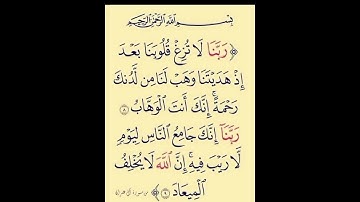 بِسْمِ اللَّهِ الرَّحْمَٰنِ الرَّحِيمِ
﴿ رَبَّنَا لَا تُزِغْ قُلُوبَنَا بَعْدَ
إِذْ هَدَيْتَنَا وَهَبْ لَنَا مِن لَّدُنكَ
رَحْمَةً ۚ إِنَّكَ أَنتَ الْوَهَّابُ ٨
رَبَّنَا إِنَّكَ جَامِعُ النَّاسِ لِيَوْمٍ
لَّا رَيْبَ فِيهِ ۚ إِنَّ اللَّهَ لَا يُخْلِفُ
الْمِيعَادَ ٩ ﴾ من سورة آل عمران